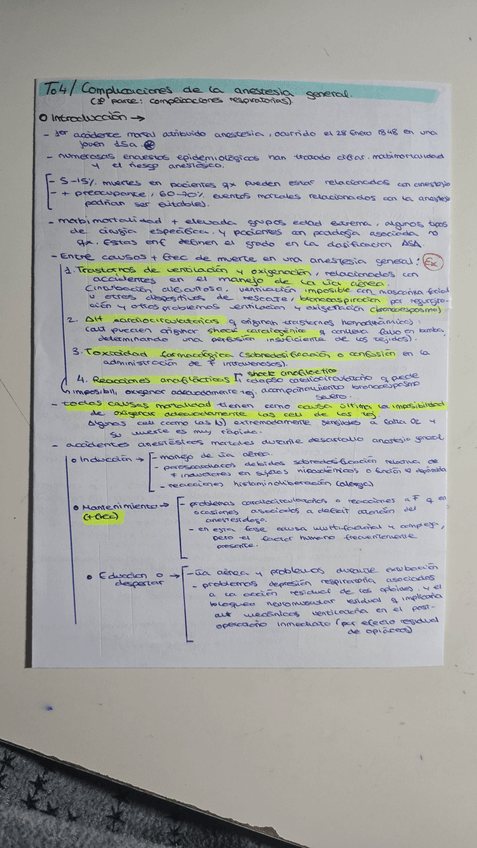 To4/ Complicaciones de la anestesia general.
(1ª parte: complicaciones respiratorias).
Introducción →
- 1er accidente mortal atribuido anestesia, ocurrido el 28 Enero 1848 en una
joven 15a.
- numerosas encuestas epidemiológicas han tratado cifrar morbimortalidad
y el riesgo anestésico.
- 5-15% muertes en pacientes qx pueden estar relacionados con anestesia
- + preocupante, 60-70% eventos mortales relacionados con la anestesia
podrían ser evitables).
- morbimortalidad + elevada grupos edad extrema, algunos tipos
de cirugía específica, y pacientes con patología asociada no
qx. Estas enf definen el grado en la clasificación ASA
- Entre causas + frec de muerte en una anestesia general: Ex
1. Trastornos de ventilación y oxigenación, relacionados con
accidentes en el manejo de la vía aérea.
(intubación dificultosa, ventilación imposible con mascarilla facial
u otros dispositivos de rescate, broncoaspiración por regurgita-
ción y otros problemas ventilación y oxigenación (broncoespasmo)
2. Alt cardiocirculatorias q originan trastornos hemodinámicos.
(alt pueden originar shock cardiogénico q conlleva fallo en bomba,
determinando una perfusión insuficiente de los tejidos).
3. Toxicidad farmacológica (sobredosificación o confusión en la
administración de F intravenosos).
4. Reacciones anafilácticas shock anafiláctico
colapso cardiocirculatorio q puede
imposibil. oxigenar adecuadamente tej. acompañamiento broncoespasmo
severo.
- todas causas mortalidad tienen como causa última la imposibilidad
de oxigenar adecuadamente las cel de los tej
Algunas cel (como las ) extremadamente sensibles a falta O2 y
su muerte es muy rápida.
- accidentes anestésicos mortales durante desarrollo anestesia general
Inducción → - manejo de vía aérea.
- paros cardiacos debidos sobredosificación relativa de
F inductores en sujetos hipovolémicos o función deprimida
- reacciones histaminoliberación (alergia)
Mantenimiento → - problemas cardiocirculatorios o reacciones a F q en
(+frec) ocasiones asociados a déficit atención del
anestesiólogo.
- en esta fase causa multifactorial y compleja,
pero el factor humano frecuentemente
presente.
Educción o → - vía aérea y problemas durante extubación
despertar - problemas depresión respiratoria asociados
a la acción residual de los opioides, y el
bloqueo neuromuscular residual q implicaría
alt mecánica ventilatoria en el post-
operatorio inmediato (por efecto residual
de opiáceos)